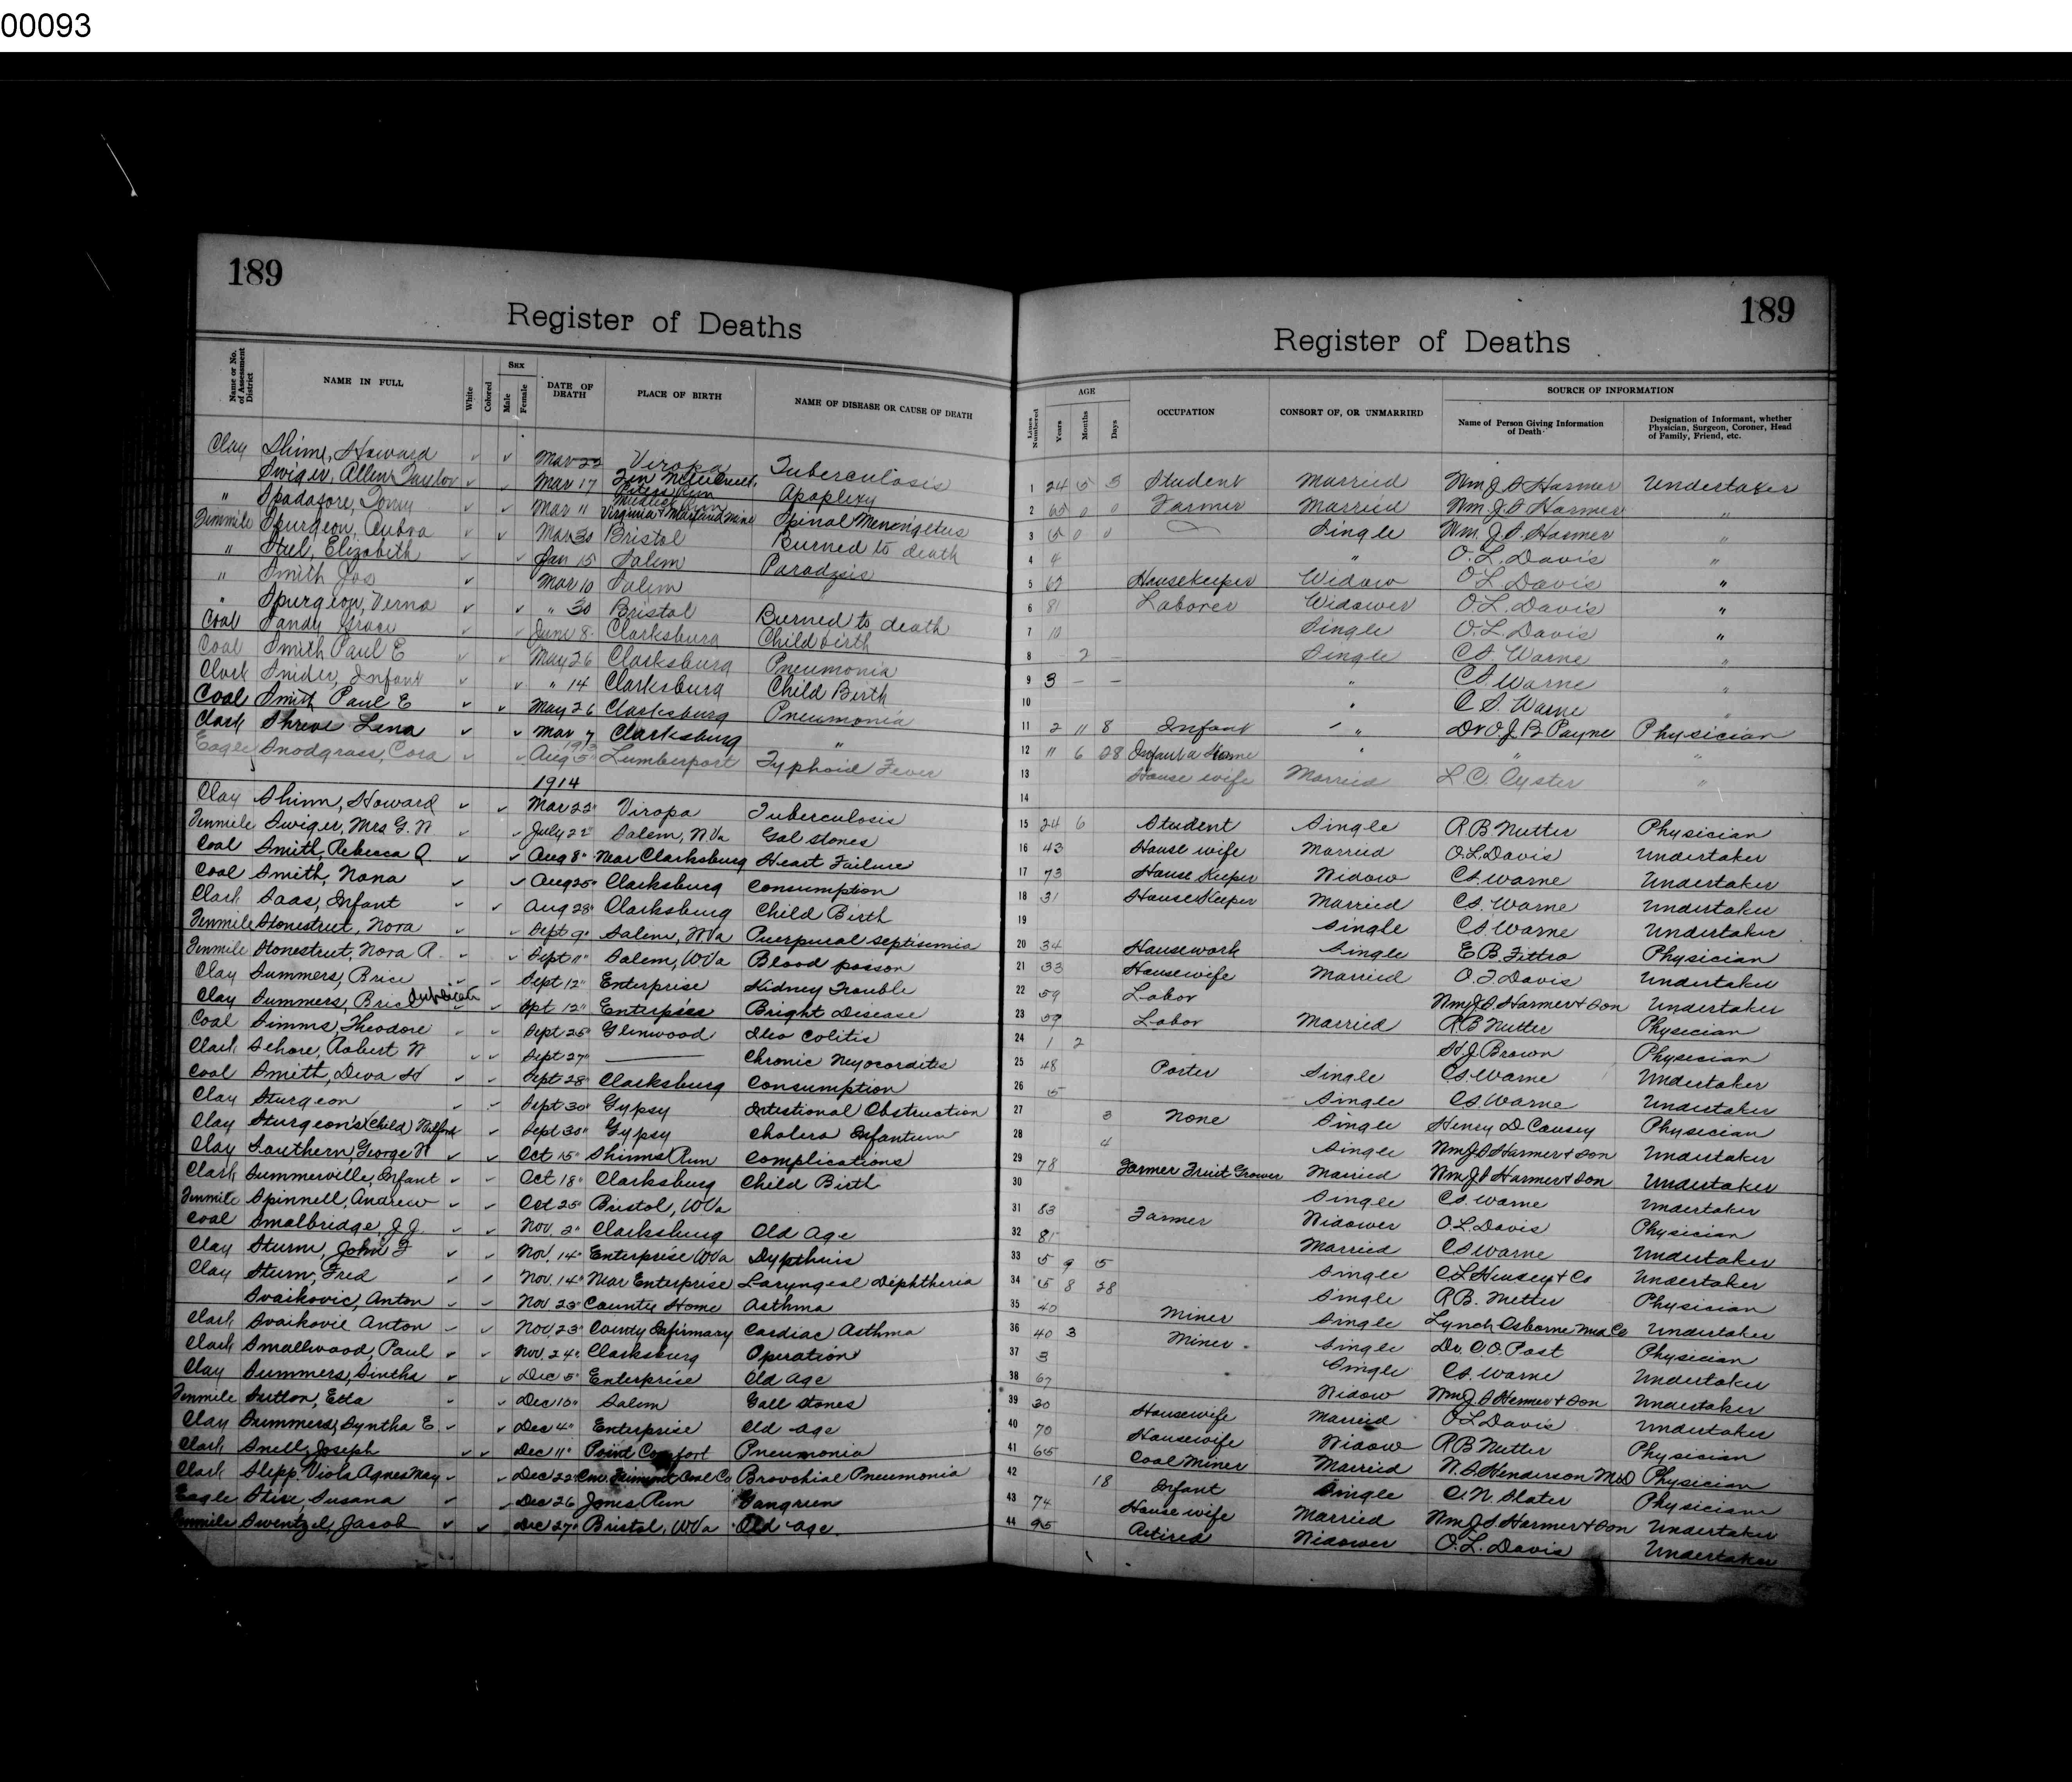 00093
189
Register of Deaths
Name or No. of Assessment District
NAME IN FULL
White
Colored
SEX
Male
Female
DATE OF DEATH
PLACE OF BIRTH
NAME OF DISEASE OR CAUSE OF DEATH
Clay Shinn, Howard Mar 22 Viropa Tuberculosis
Swiger, Allen Taylor Mar 17 Apoplexy
" Spadafore, Tony Mar 11 Virginia & Maryland Mine Spinal Meningetus
Tenmile Spurgeon, Aubra Mar 30 Bristol Burned to death
" Stul, Elizabeth Jan 15 Salem Paradysis
" Smith Jas Mar 10 Salem
" Spurgeon, Verna " 30 Bristol Burned to death
Coal Sandy Grace June 8 Clarksburg Childbirth
Coal Smith Paul E May 26 Clarksburg Pneumonia
Clark Snider, Infant " 14 Clarksburg Child Birth
Coal Smith Paul E May 26 Clarksburg Pneumonia
Clark Shreve Lena Mar 7 Clarksburg "
Eagle Snodgrass, Cora 1913 Aug 5 Lumberport Typhoid Fever
1914
Clay Shinn, Howard Mar 22" Viropa Tuberculosis
Tenmile Swiger, Mrs G. W July 22" Salem, W Va Gal stones
Coal Smith, Rebecca A Aug 8" Near Clarksburg Heart Failure
Coal Smith, Nana Aug 25" Clarksburg Consumption
Clark Saas, Infant Aug 28" Clarksburg Child Birth
Tenmile Stonestreet, Nora Sept 9" Salem, W Va Puerpural septisemia
Tenmile Stonestreet, Nora A. Sept 11" Salem, W Va Blood posson
Clay Summers, Brice Sept 12" Enterprise Kidney Trouble
Clay Summers, Brice duplicate Spt 12" Enterprise Bright Disease
Coal Simms, Theodore Sept 25" Glenwood Ileo Colitis
Clark Sehore, Robert W Sept 27" Chronic Myocordites
Coal Smith, Deva H Sept 28" Clarksburg Consumption
Clay Sturgeon Sept 30" Gypsy Intestional Obstruction
Clay Sturgeon's (Child) Wilford Sept 30" Gypsy Cholera Infantum
Clay Southern, George W Oct 15" Shinns Run Complications
Clark Summerville, Infant Oct 18" Clarksburg Child Birth
Tenmile Spinnell, Andrew Oct 25" Bristol, W Va
Coal Smalbridge, J J. Nov. 2" Clarksburg Old Age
Clay Sturm, John F Nov. 14" Enterprise W Va Dypthuis
Clay Sturm, Fred Nov. 14" Near Enterprise Laryngeal Diphtheria
Svaikovic, Anton Nov 23" County Home Asthma
Clark Svaikovic Anton Nov. 23" County Infirmary Cardiac Asthma
Clark Smallwood, Paul Nov. 24" Clarksburg Operation
Clay Summers, Sintha Dec 5" Enterprise Old Age
Tenmile Sutton, Etta Dec 10" Salem Gall stones
Clay Summers, Syntha E. Dec 4" Enterprise Old Age
Clark Snell, Joseph Dec 11" Point Comfort Pneumonia
Clark Slipp, Viola Agnes May Dec 22" Coal Co Brovchial Pneumonia
Eagle Stire, Susana Dec 26 Jones Run Gangreen
Tenmile Swentzel, Jacob Dec 27" Bristol, W Va Old Age.
189
Register of Deaths
Lines Numbered
AGE
Years
Months
Days
OCCUPATION
CONSORT OF, OR UNMARRIED
SOURCE OF INFORMATION
Name of Person Giving Information of Death
Designation of Informant, whether Physician, Surgeon, Coroner, Head of Family, Friend, etc.
1 24 5 3 Student Married Wm J S Harmer Undertaker
2 65 0 0 Farmer Married Wm. J. S Harmer "
3 5 0 0 Single Wm. J. S. Harmer "
4 4 " O. L. Davis "
5 67 Housekeeper Widow O L Davis "
6 81 Laborer Widower O. L. Davis "
7 10 Single O. L. Davis "
8 - 2 - Single C S. Warne "
9 3 - - " C S. Warne "
10 " C S. Warne "
11 2 11 8 Infant " Dr O. J B Payne Physician
12 11 6 28 Infant a Home " " "
13 House wife Married L C. Oyster "
14
15 24 6 Student Single R B Nutter Physician
16 43 House wife Married O. L. Davis Undertaker
17 73 House Keeper Widow C S. Warne Undertaker
18 31 House Keeper Married C S. Warne Undertaker
19 Single C S Warne Undertaker
20 34 Housework Single E B Fittro Physician
21 33 Housewife Married O. L Davis Undertaker
22 59 Labor Wm J S Harmer & Son Undertaker
23 59 Labor Married R. B Nutter Physician
24 1 2 H J Brown Physician
25 48 Porter Single C S. Warne Undertaker
26 5 Single C S. Warne Undertaker
27 3 None Single Henry D Causey Physician
28 4 Single Wm J S Harmer & Son Undertaker
29 78 Farmer Fruit Grower Married Wm J S Harmer & Son Undertaker
30 Single C S. Warne Undertaker
31 83 Farmer Widower O. L. Davis Physician
32 81 Married C S Warne Undertaker
33 5 9 5 Single C. L Hensey & Co Undertaker
34 5 8 28 Single R B. Nutter Physician
35 40 Miner Single Lynch Osborne Med Co Undertaker
36 40 3 Miner Single Dr. C. O. Post Physician
37 3 Single C S. Warne Undertaker
38 67 Widow Wm J S Harmer & Son Undertaker
39 30 Housewife Married O L Davis Undertaker
40 70 Housewife Widow R B Nutter Physician
41 65 Coal Miner Married W. S. Henderson M D Physician
42 18 Infant Single C. N. Slater Physician
43 74 House wife Married Wm J. S. Harmer & Son Undertaker
44 95 Retired Widower O. L. Davis Undertaker